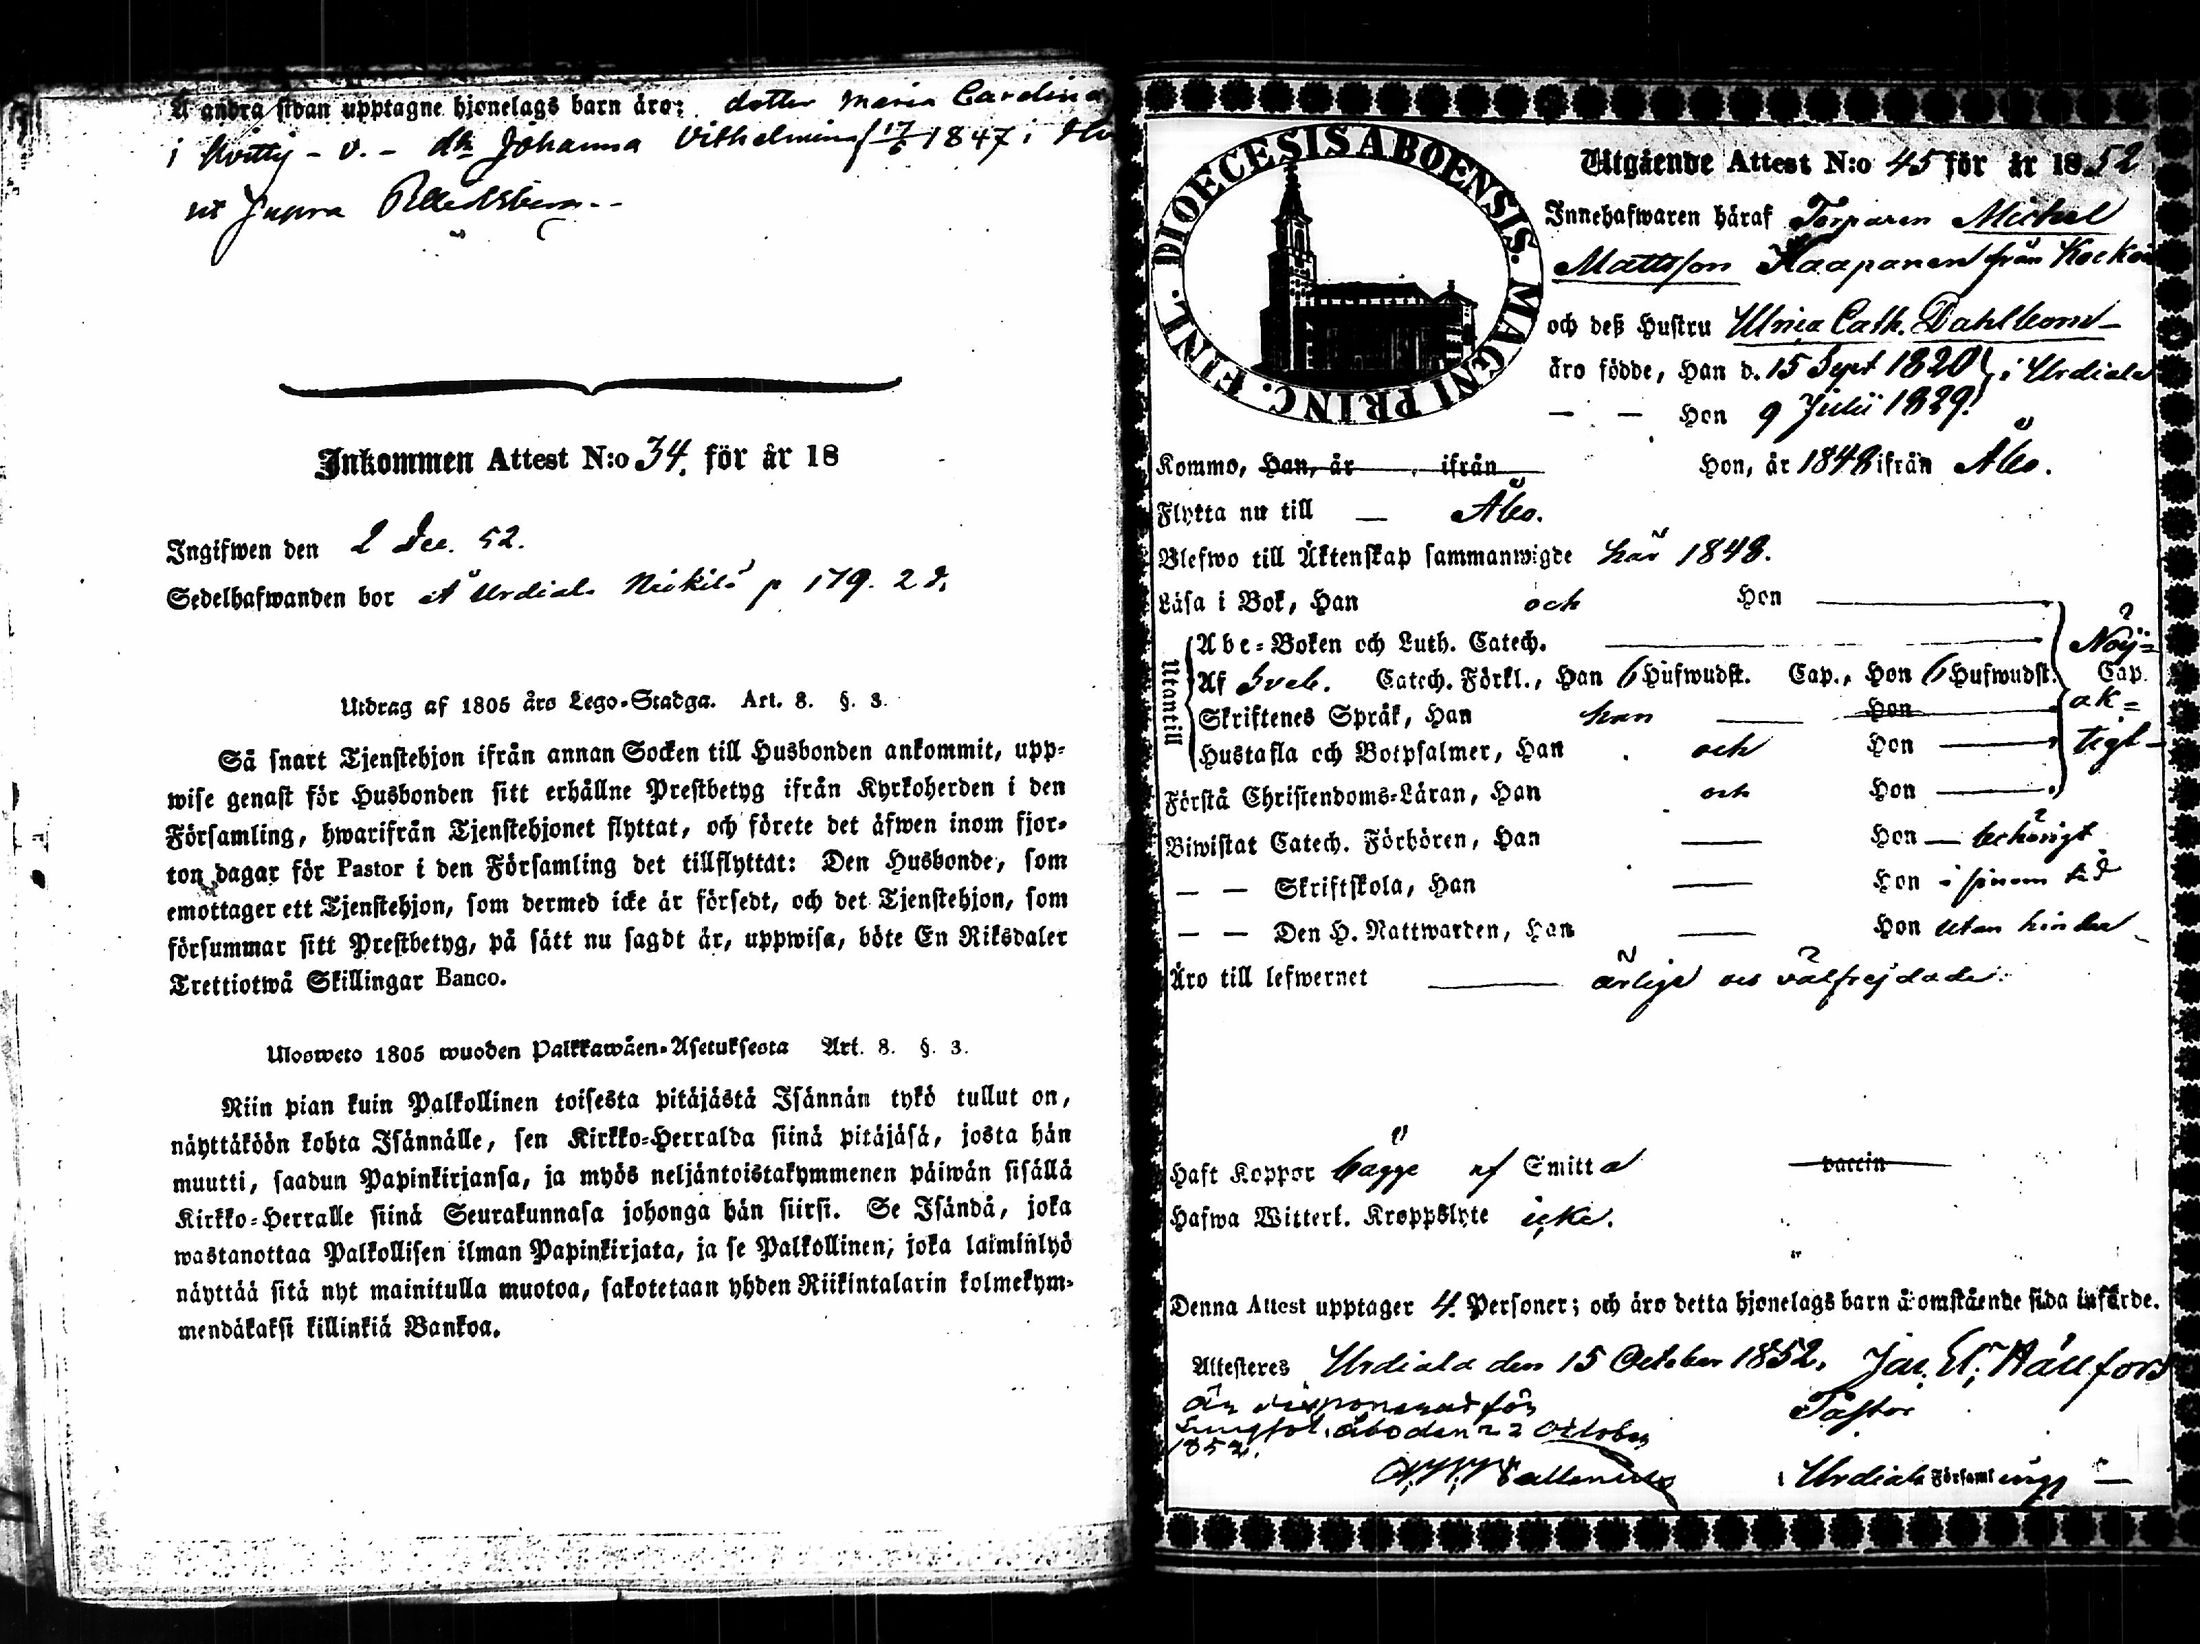 Å andra sidan upptagne hjonelags barn äro: dotter Maria Carolina
i Hvitty - v. - dtr Johanna Vilhelmina 17/5 1847 i
ut supra
Inkommen Attest N:o 34. för år 18
Ingifwen den 2 Dec. 52.
Sedelhafwanden bor p 179. 2 d.
Utdrag af 1805 års Lego-Stadga. Art. 8. §. 3.
Så snart Tjenstehjon ifrån annan Socken till Husbonden ankommit, upp-
wise genast för Husbonden sitt erhållne Prestbetyg ifrån Kyrkoherden i den
Församling, hwarifrån Tjenstehjonet flyttat, och förete det äfwen inom fjor-
ton dagar för Pastor i den Församling det tillflyttat: Den Husbonde, som
emottager ett Tjenstehjon, som dermed icke är försedt, och det Tjenstehjon, som
försummar sitt Prestbetyg, på sätt nu sagdt är, uppwisa, böte En Riksdaler
Trettiotwå Skillingar Banco.
Ulosweto 1805 wuoden Palkkawäen-Asetuksesta Art. 8. §. 3.
Niin pian kuin Palkollinen toisesta pitäjästä Isännän tykö tullut on,
näyttäköön kohta Isännälle, sen Kirkko-Herralda siinä pitäjäsä, josta hän
muutti, saadun Papinkirjansa, ja myös neljäntoistakymmenen päiwän sisällä
Kirkko-Herralle siinä Seurakunnasa johonga hän siirsi. Se Isändä, joka
wastanottaa Palkollisen ilman Papinkirjata, ja se Palkollinen, joka laiminlyö
näyttää sitä nyt mainitulla muotoa, sakotetaan yhden Riikintalarin kolmekym-
mendäkaksi killinkiä Bankoa.
DIOECESIS ABOENSIS. MAGNI PRINC. FINL.
Utgående Attest N:o 45 för år 1852
Innehafwaren häraf Torparen Michel
Mattsson Haapanen från
och deß Hustru Ulrica Cath. Dahlbom
äro födde, Han d. 15 Sept 1820 } i Urdiala
— — Hon 9 Julii 1829.
Kommo, Han, år , ifrån Hon, år 1848 ifrån Åbo.
Flytta nu till — Åbo.
Blefwo till Äktenskap sammanwigde här 1848.
Läsa i Bok, Han och Hon
Utantill
Abc-Boken och Luth. Catech. Nöj-
Af Sveb. Catech. Förkl., Han 6 Hufwudst. Cap., Hon 6 Hufwudst. Cap.
Skriftenes Språk, Han han Hon ak-
Hustafla och Botpsalmer, Han och Hon tigt
Förstå Christendoms-Läran, Han och Hon
Biwistat Catech. Förhören, Han — Hon — behörigt
— — Skriftskola, Han — Hon i sinom tid
— — Den H. Nattwarden, Han — Hon utan hinder
Äro till lefwernet — ärlige och välfrejdade.
Haft Koppor bägge af Smitta vaccin
Hafwa Witterl. Kroppslyte icke.
Denna Attest upptager 4. Personer; och äro detta hjonelags barn å omstående sida införde.
Attesteres Urdiala den 15 October 1852. Jac. El. Hällfors
Pastor
Åbo den 22 October
1852.
i Urdiala Församling